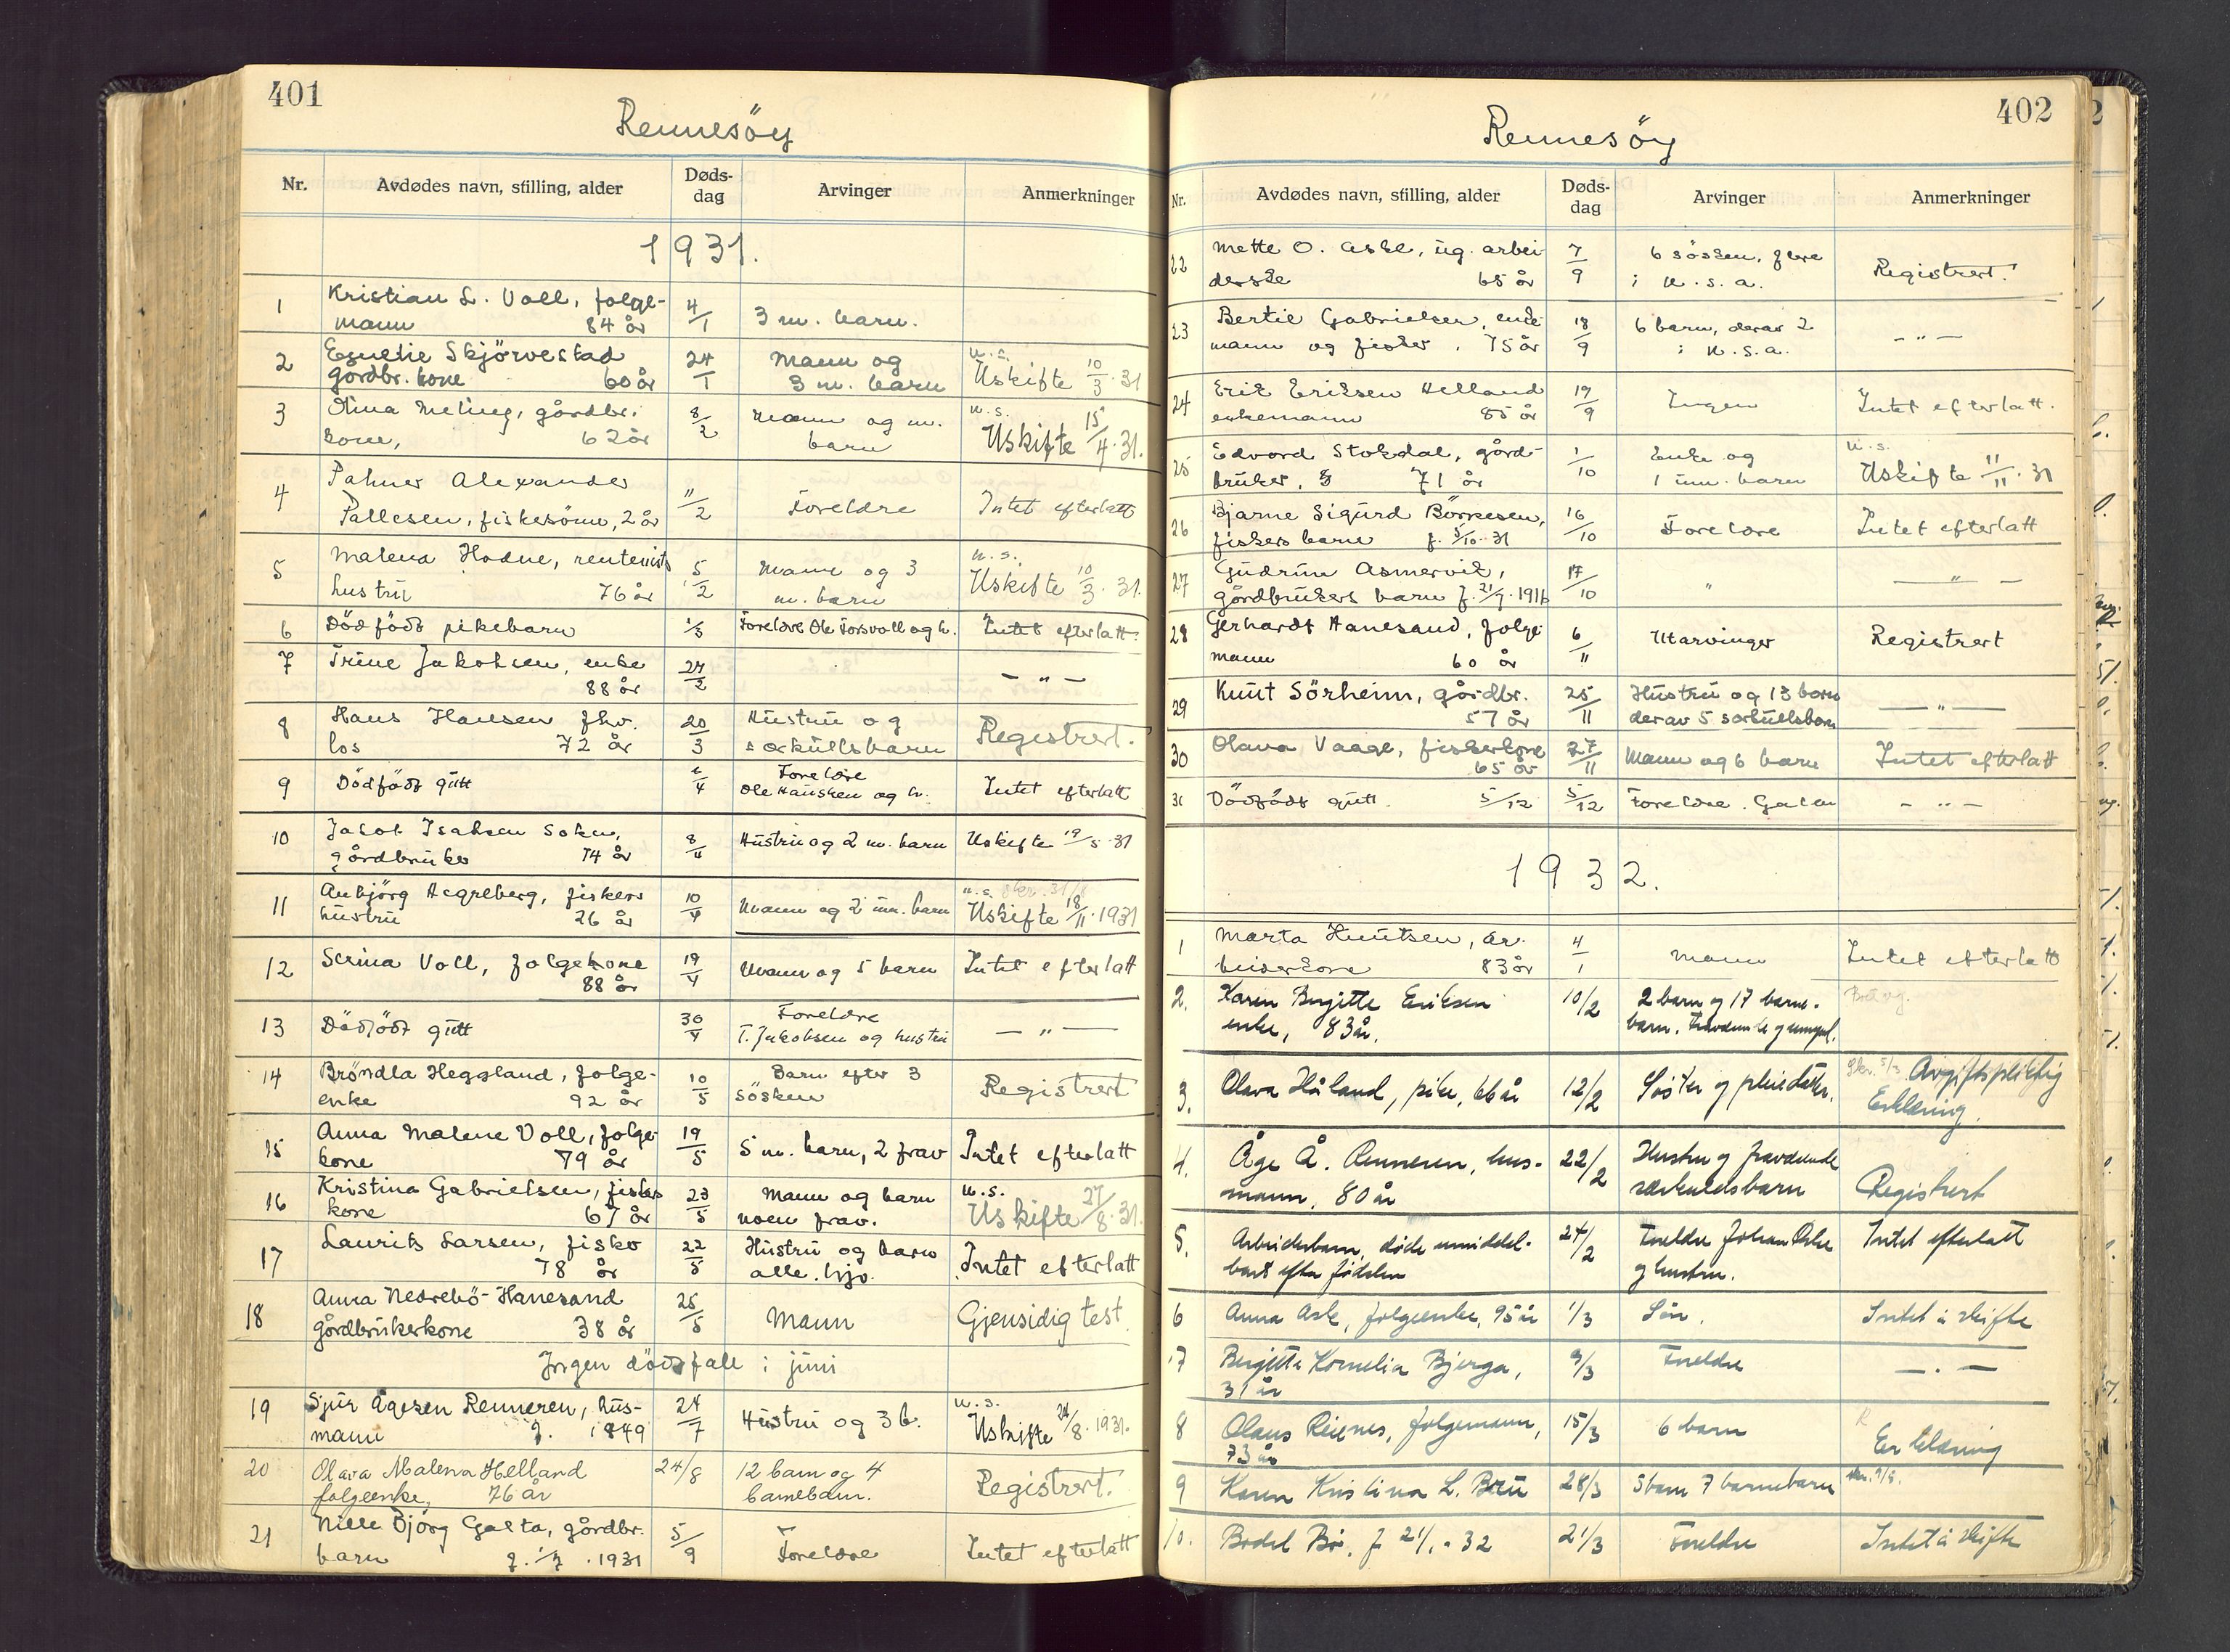 401
Rennesöy
Nr. Avdødes navn, stilling, alder Døds-dag Arvinger Anmerkninger
1931.
1 Kristian L. Voll, folge- 4/1 3 m. barn.
mann 84 år
2 Skjörvestad 24/1 Mann og u.s.
gårdbr. kone 60 år 3 m. barn Uskifte 10/3 31
3 Meling, gårdbr. 8/2 Mann og m. u.s.
kone, 62 år barn Uskifte 15/4 31.
4 Palmer Alexander 11/2 Foreldre Intet efterlatt
Pallesen, fiskesönn, 2 år
5 Malena Hodne, rentenists 5/2 Mann og 3 u.s.
hustrü 76 år m. barn Uskifte 10/3 31.
6 Dödfödt pikebarn 1/3 Foreldre Ole Forsvoll og h. Intet efterlatt.
7 Trine Jakobsen, enke 27/2 — " —
88 år
8 Hans Hansen fhv. 20/3 Hustrü og Registrert.
los 72 år særküllsbarn
9 Dödfödt gütt 2/4 Foreldre Intet efterlatt
Ole Hausken og h.
10 Jakob Isaksen Soken, 8/4 Hüstrü og 2 m. barn Uskifte 19/5 31
gårdbrüker 74 år
11 Anbjörg Hegreberg, fiskers 10/4 Mann og 2 um. barn u.s. skr. 31/8
hüstrü 26 år Uskifte 18/11 1931
12 Serina Voll, folgekone 19/4 Mann og 5 barn Intet efterlatt
88 år
13 Dödfödt gütt 30/4 Foreldre — " —
T. Jakobsen og hustrü
14 Bröndla Heggland, folge- 10/5 Barn efter 3 Registrert
enke 92 år söskem
15 Anna Malene Voll, folge- 19/5 5 m. barn, 2 frav Intet efterlatt
kone 79 år
16 Kristina Gabrielsen, fisker 23/5 Mann og barn u.s.
kone 67 år noen frav. Uskifte 27/8 31.
17 Laurits Larsen, fisker 22/5 Hüstrü og barn Intet efterlatt
78 år alle hjv.
18 Anna Nedrebö-Hanesand 25/5 Mann Gjensidig test.
gårdbrükerkone 38 år
Ingen dödsfall i jüni
19 Sjür Ågesen Renneren, hüs- 24/7 Hüstrü og 3 b. u.s.
mann f. 1849 Uskifte 24/8 1931.
20 Olava Malena Helland 24/8 12 barn og 4 Registrert.
folgeenke, 76 år barnebarn.
21 Nille Björg Galta, gårdbr. 5/9 Foreldre Intet efterlatt
barn f. 1/7 1931
402
Rennesöy
Nr. Avdødes navn, stilling, alder Døds-dag Arvinger Anmerkninger
22 Mette O. Aske, üg. arbei- 7/9 6 sösken, flere Registrert.
derske 65 år i U.S.A.
23 Bertil Gabrielsen, enke- 18/9 6 barn, derav 2 — " —
mann og fisker, 75 år i U.S.A.
24 Erik Eriksen Helland 19/9 Ingen Intet efterlatt.
enkemann 85 år
25 Edvard Stokdal, gård- 1/10 Enke og u.s.
brüker, 71 år 1 um. barn Uskifte 11/11 31
26 Bjarne Sigürd Börresen, 16/10 Foreldre Intet efterlatt
fiskers barn f. 5/10 31
27 Güdrün Asmervik, 17/10 " — " —
gårdbrükers barn f. 21/9 1916
28 Gerhardt Hanesand, folge- 6/11 Utarvinger Registrert
mann 60 år
29 Knüt Sörheim, gårdbr. 25/11 Hüstrü og 13 barn — " —
57 år derav 5 særküllsbarn
30 Olava Vaage, fiskerkone 27/11 Mann og 6 barn Intet efterlatt
65 år
31 Dödfödt gütt. 5/12 5/12 Foreldre. Galta — " —
1932.
1 Marta Knütsen, ar- 4/1 Mann Intet efterlatt
beiderkone 83 år
2. Karen Birgitte Eriksen 10/2 2 barn og 17 barne-
enke, 83 år. barn, fraværende og umynd.
3. Olava Håland, pike, 66 år 12/2 Søster og pleiedatter. Skr. 5/3 Avgiftspliktig
Erklæring.
4. Åge Å. Renneren, hus- 22/2 Hustru og fraværende Registrert
mann, 80 år særkuldsbarn
5. Arbeiderbarn, døde umiddel- 24/2 Foreldre Johan Aske Intet efterlatt
bart efter fødslen og hustru.
6 Anna Ask, folgeenke, 95 år 1/3 Søn. Intet å skifte
7 Birgitte Kornelia Bjerga, 9/3 Foreldre — " —
31 år
8 Olaus Reienes, folgemann, 15/3 6 barn R Erklæring
73 år
9 Karen Kristina L. Brü 28/3 5 barn 7 barnebarn
10. Bodel Bø. f 21/1 - 32 21/3 Foreldre Intet å skifte